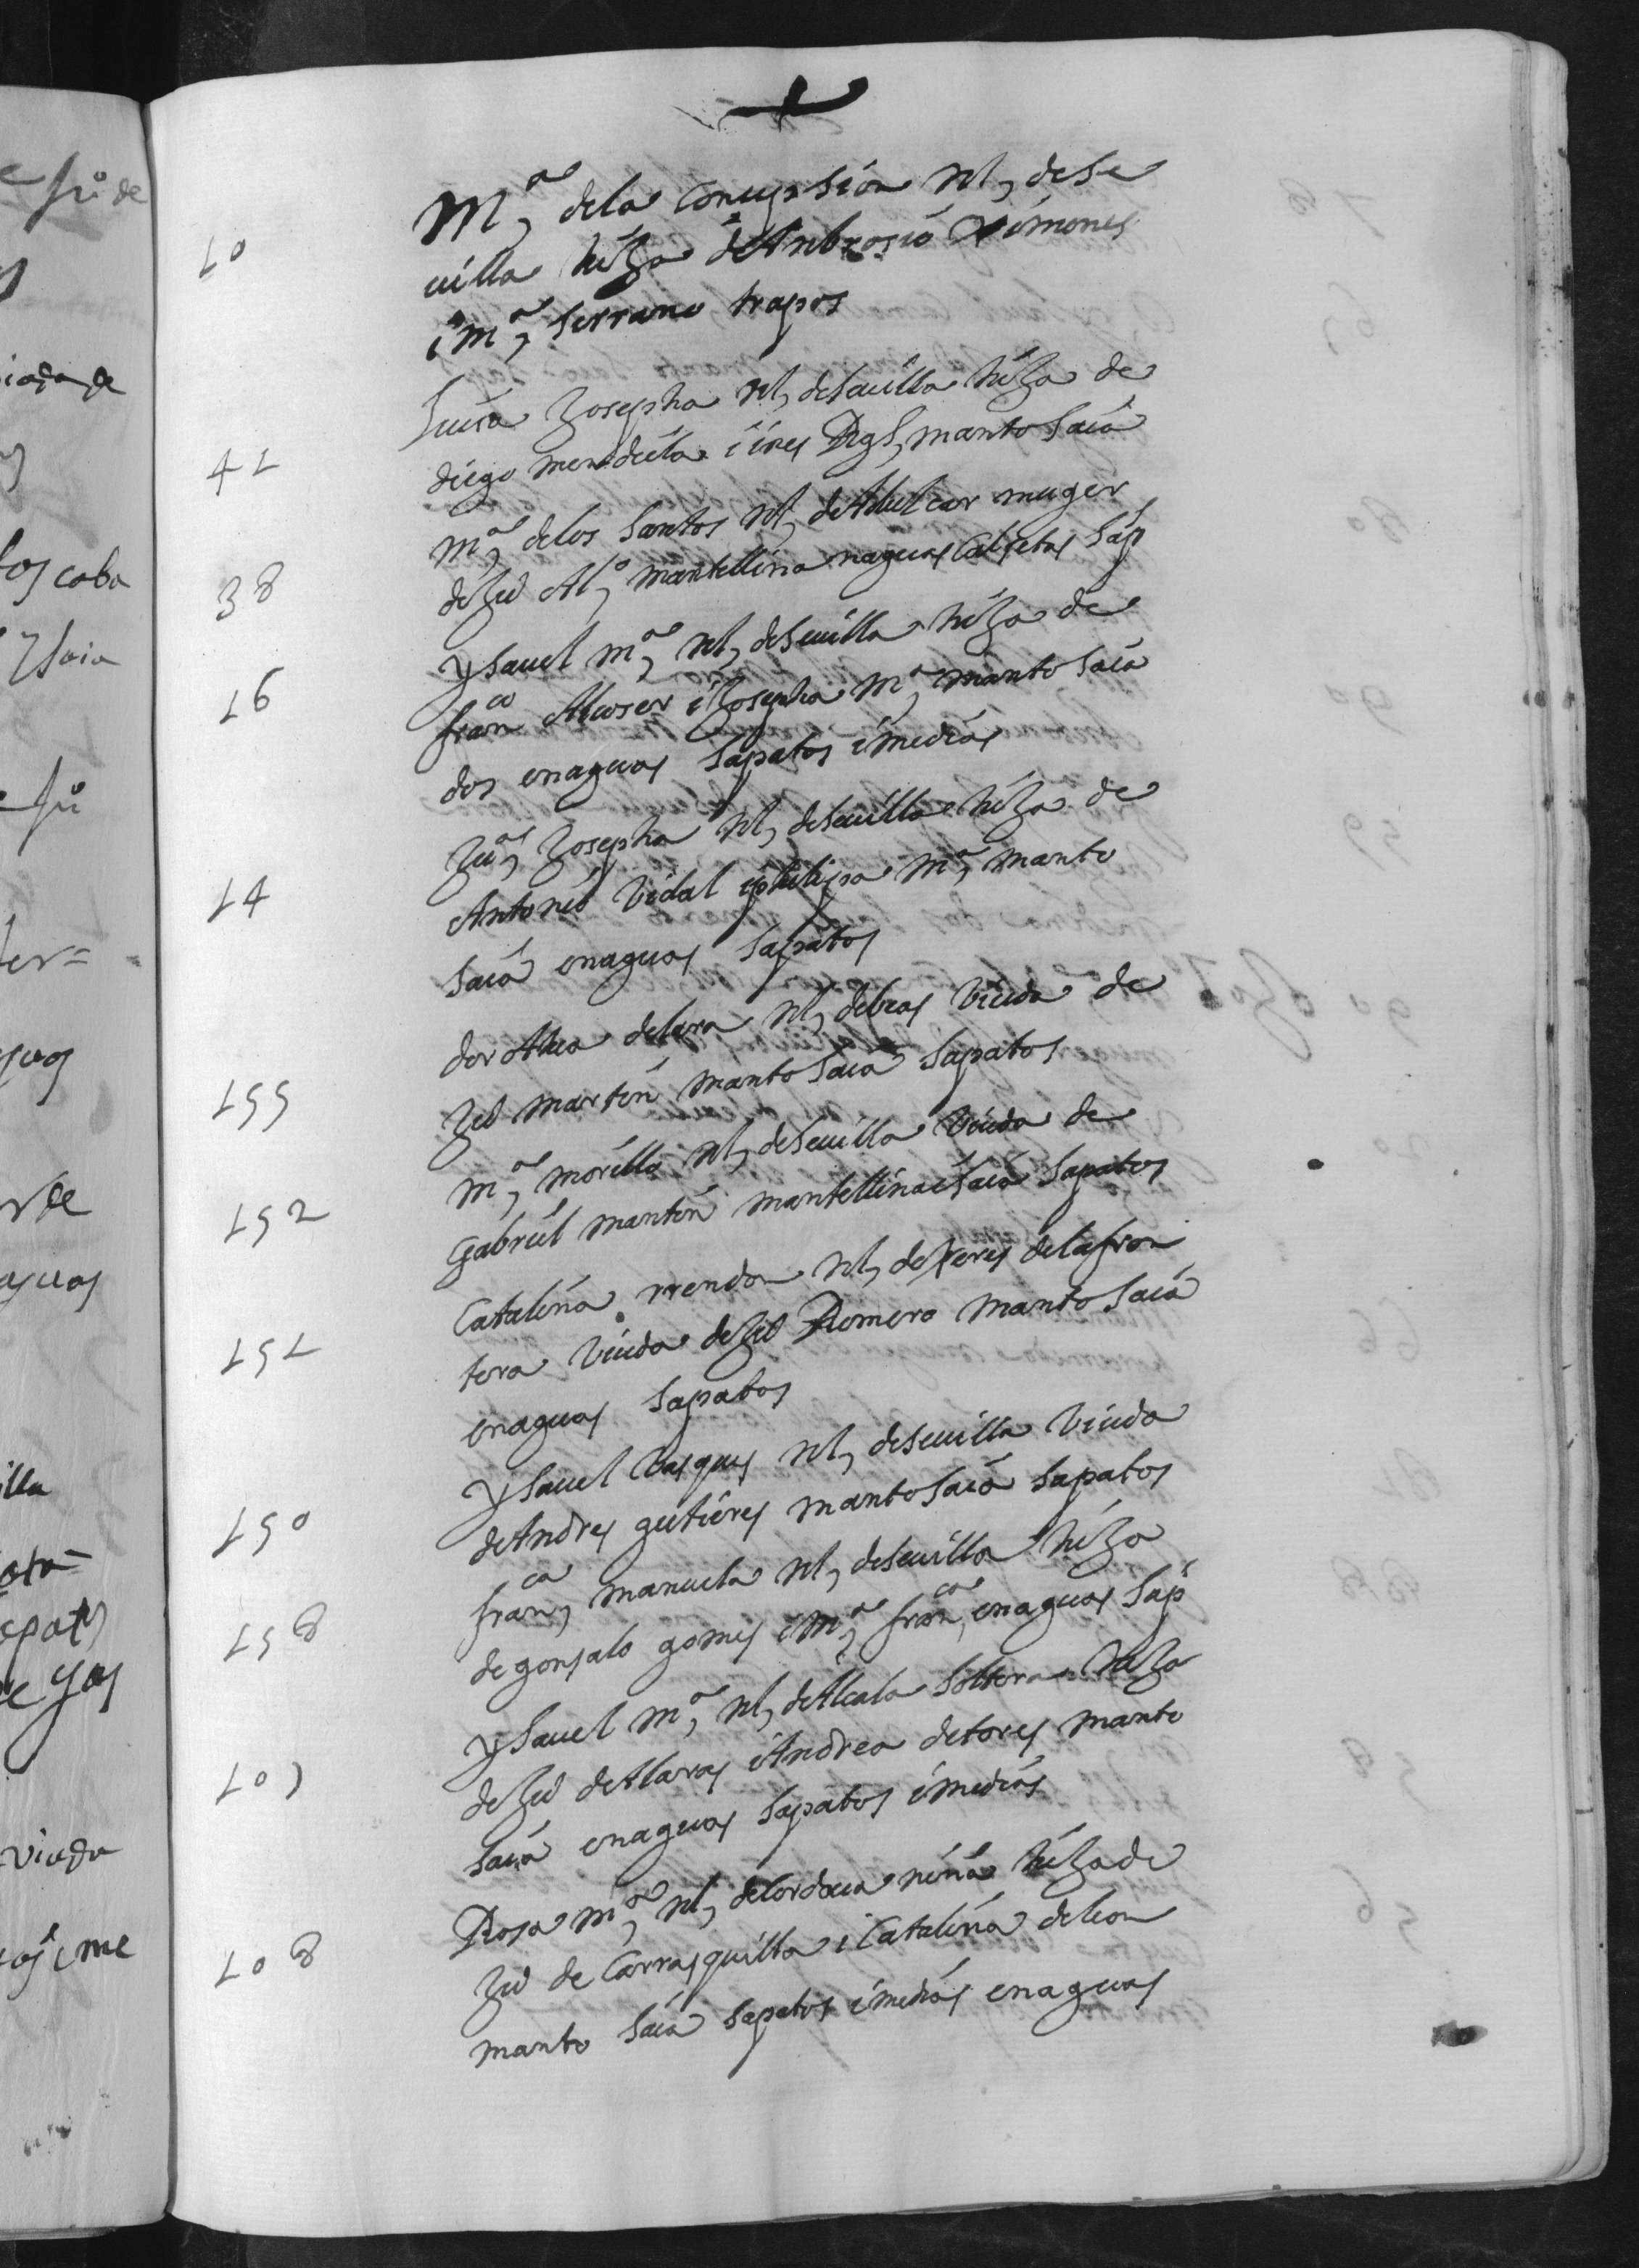 Mª dela consepsion nl, dese
10 uilla hiza de Anbrosio Ximenes
i mª serrano trapos
Luisa Zosepha nl, deseuilla hiza de
41 diego mendieta i ines Rgs, manto saia
mª delos santos nl, de Alulcar muger
38 de Zuº Alº, mantellina naguas Calsetas sap
Ysauel mª, nl, deseuilla hiza de
16 franco Alcoser i Zosepha mª manto saia
dos enaguas sapatos i medias
Zuª, Zosepha nl, deseuilla hiza de
14 Antonio Vidal i phelipa mª, manto
saia enaguas sapatos
dorothea delara nl, debeas Viuda de
155 Zuº martin manto saia sapatos
mª, morillo nl, deseuilla Viuda de
152 Gabriel martin mantellina i saia sapatos
Catalina rrendon nl, de Xeres dela fron
151 tera Viuda de Zuº Romero manto saia
enaguas sapatos
Ysauel Vasques nl, deseuilla Viuda
150 de Andres gutieres manto saia sapatos
franca, manuela nl, deseuilla hiza
158 de gonsalo gomes i mª, franca, enaguas sap
Ysauel mª, nl, de Alcala soltera hiza
107 de Zuº de Alaras i Andrea detores manto
saia enaguas sapatos i medias
Rosa mª, nl, de Cordoua niña hiza de
108 Zuº de Carrasquilla i Catalina deleon
manto saia sapatos i medias enaguas